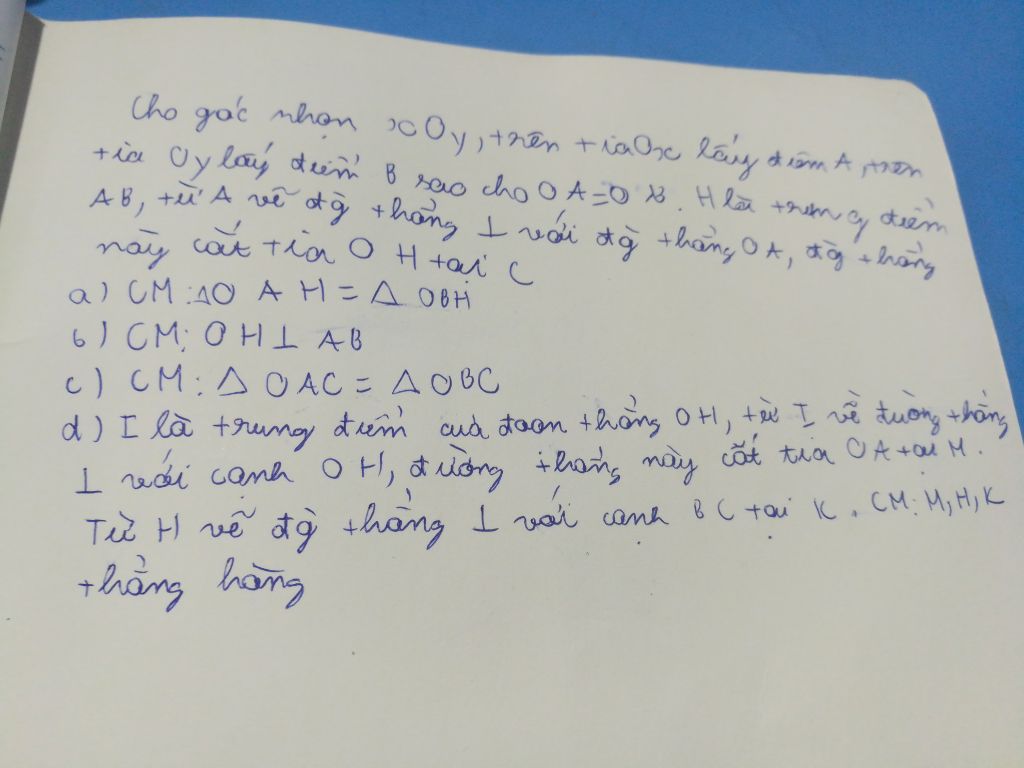 Cho góc nhọn xOy, trên tia Ox lấy điểm A, trên
tia Oy lấy điểm B sao cho OA=OB. H là trung điểm
AB, từ A vẽ đg̀ thẳng ⊥ với đg̀ thẳng OA, đg̀ thẳng
này cắt tia OH tại C
a) CM: △OAH = △OBH
b) CM: OH⊥AB
c) CM: △OAC = △OBC
d) I là trung điểm của đoạn thẳng OH, từ I vẽ đường thẳng
⊥ với cạnh OH, đường thẳng này cắt tia OA tại M.
Từ H vẽ đg̀ thẳng ⊥ với cạnh BC tại K. CM: M, H, K
thẳng hàng